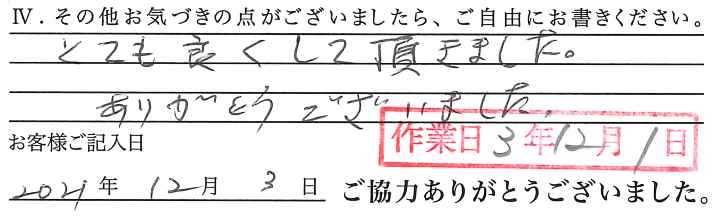 Ⅳ．その他お気づきの点がございましたら、ご自由にお書きください。
とても良くして頂きました。
ありがとうございました。
作業日 3年12月1日
お客様ご記入日
2021年 12月 3日 ご協力ありがとうございました。